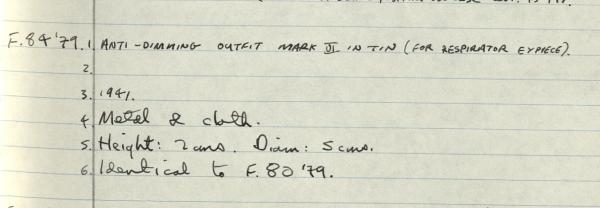 F.84'79. 1. ANTI-DIMMING OUTFIT MARK VI IN TIN (FOR RESPIRATOR EYPIECE).
2.
3. 1941.
4. Metal & cloth.
5. Height: 2 cms. Diam: 5 cms.
6. Identical to F.80'79.